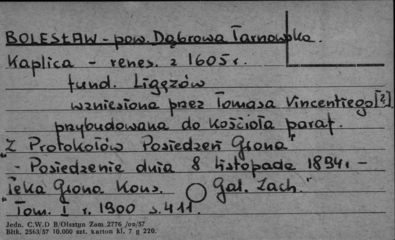 BOLESŁAW - pow. Dąbrowa Tarnowska.
Kaplica - renes. z 1605 r.
fund. Ligęzów
wzniesiona przez Tomasa Vincentiego [?]
przybudowana do Kościoła paraf.
"Z Protokołów Posiedzeń Grona"
- Posiedzenie dnia 8 listopada 1894r -
"Teka Grona Kons. Gal. Zach."
Tom. I r. 1900 s. 411.
Jedn. C.W.D B/Olsztyn Zam 2776 /on/57
Bltk. 2563/57 10.000 szt. karton kl. 7 g 220.